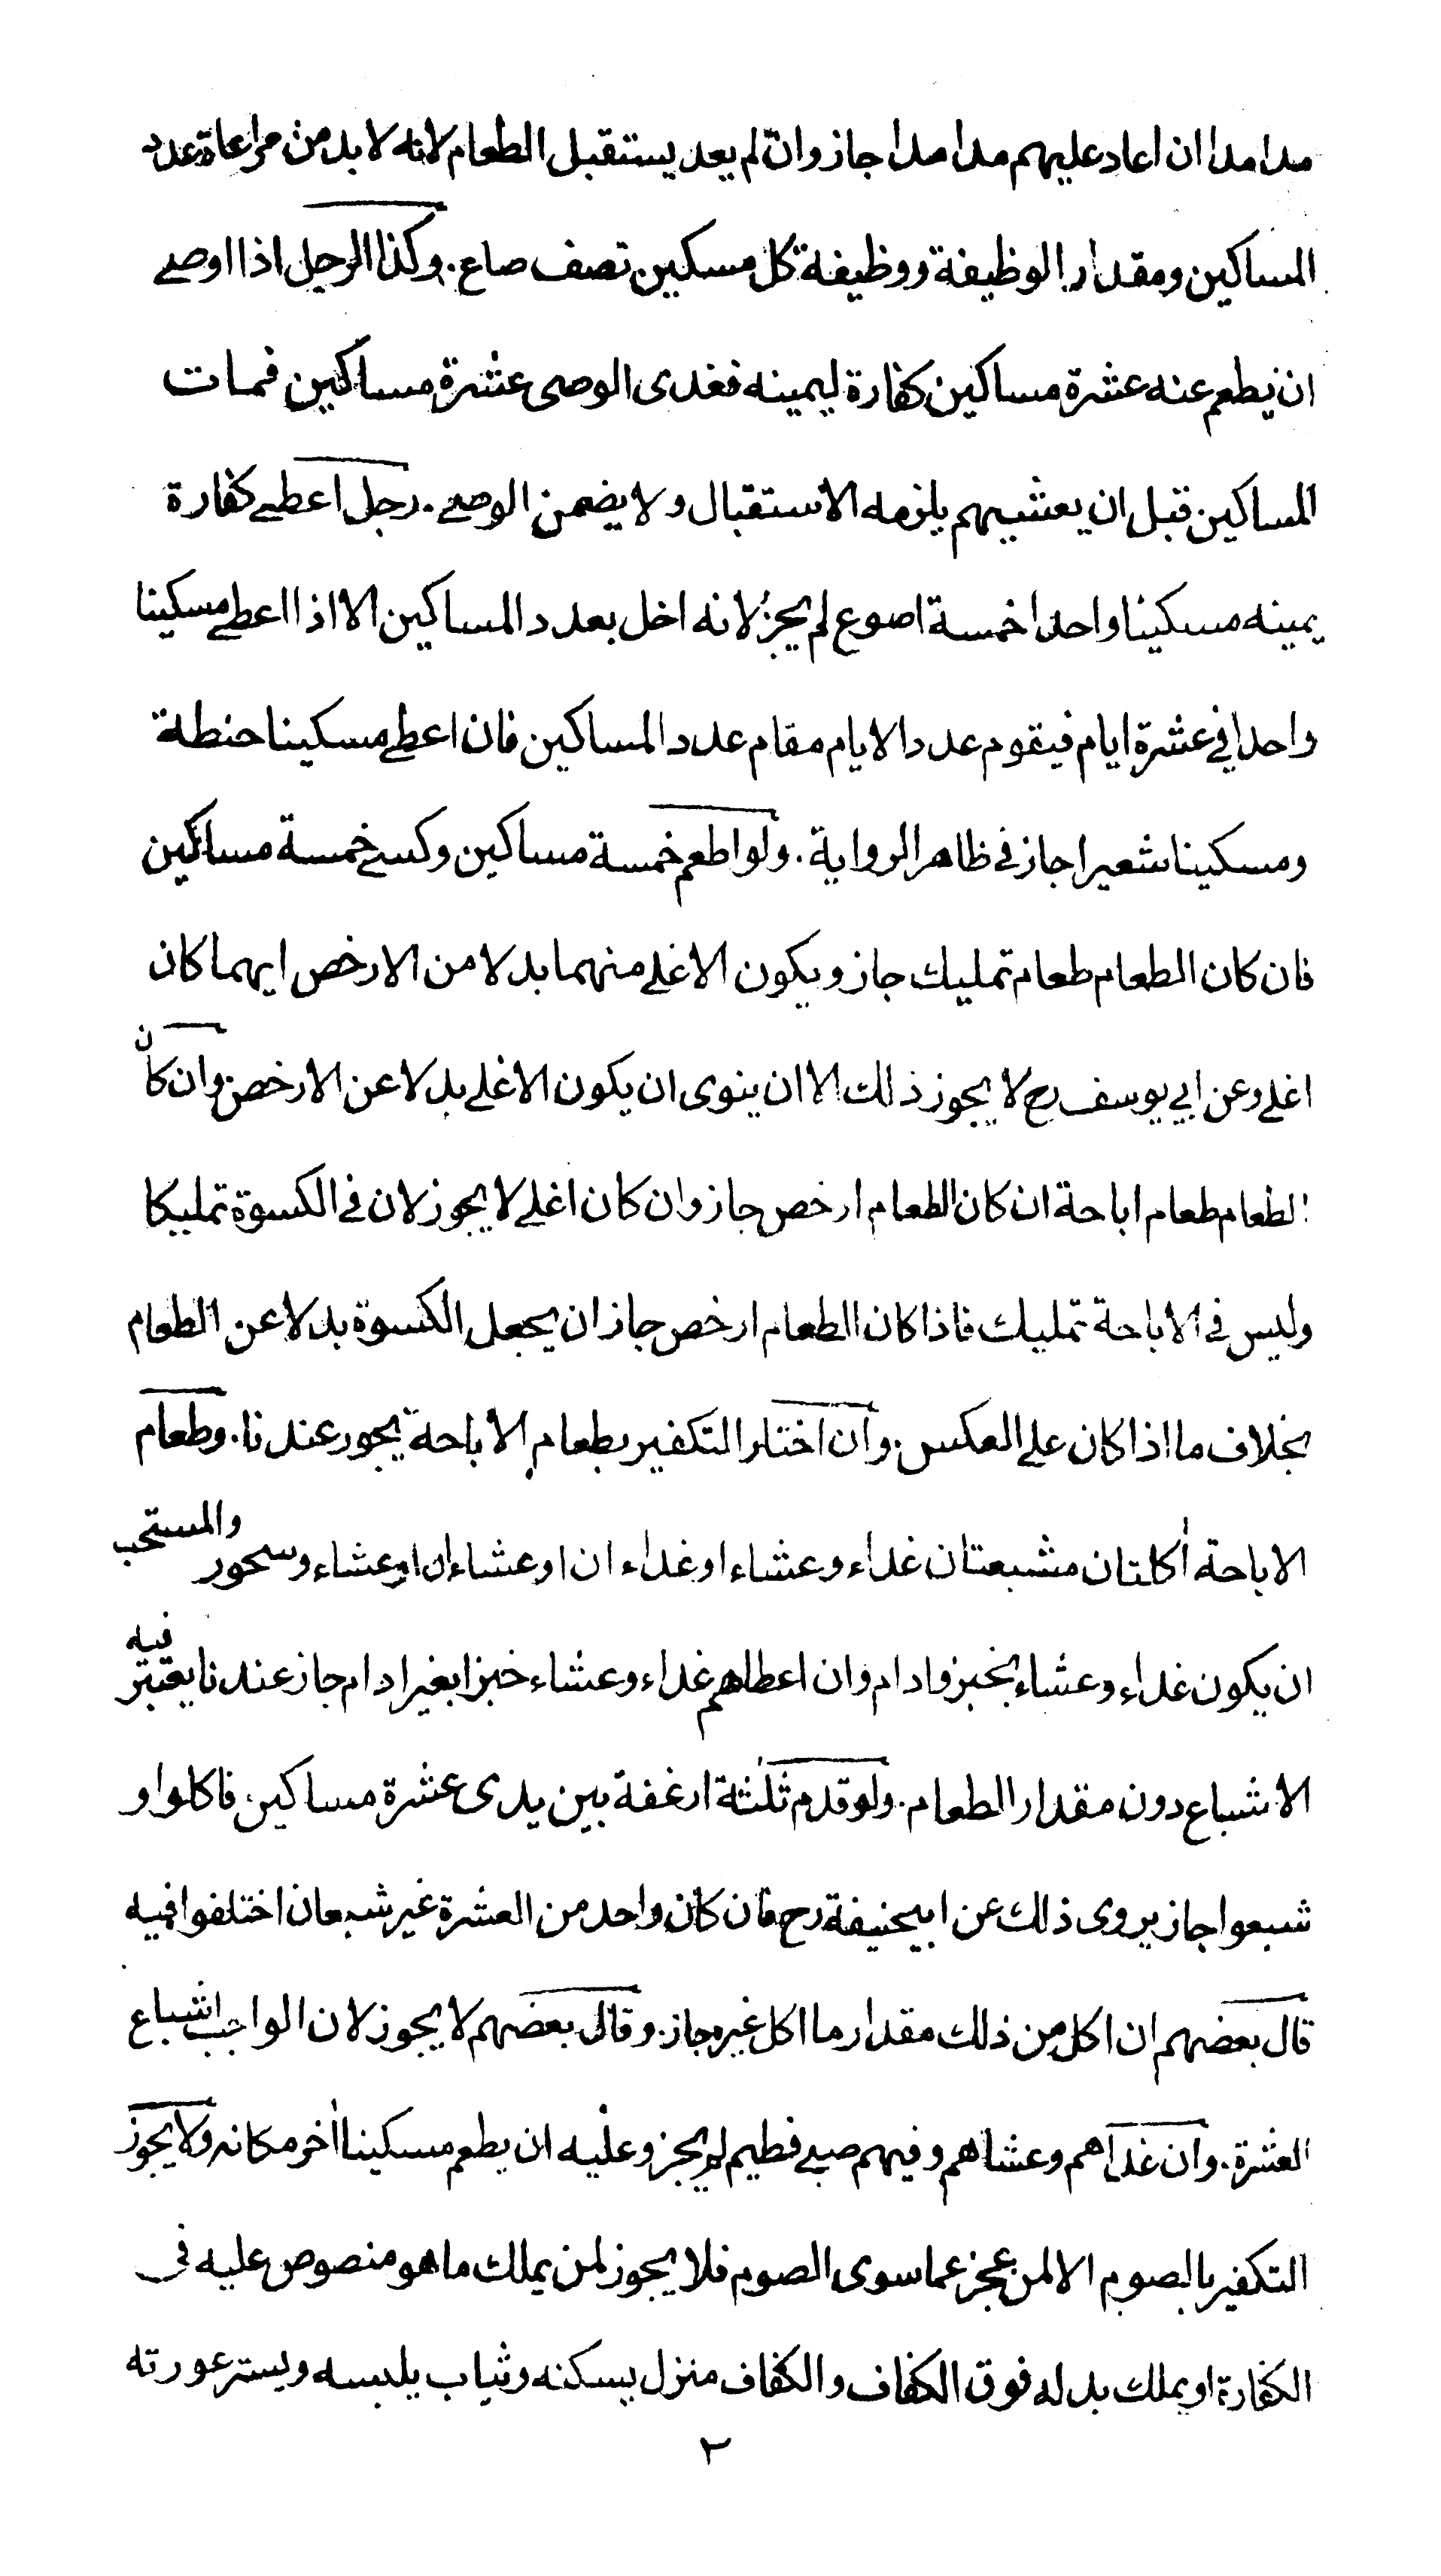 مدا مدا ان اعاد عليهم مدا مدا جاز وان لم يعد يستقبل الطعام لانه لا بد من مراعاة عدد
المساكين ومقدار الوظيفة ووظيفة كل مسكين نصف صاع. وكذا الرجل اذا اوصى
ان يطعم عنه عشرة مساكين كفارة ليمينه فغدى الوصى عشرة مساكين فمات
المساكين قبل ان يعشيهم يلزمه الاستقبال ولا يضمن الوصى. رجل اعطى كفارة
يمينه مسكينا واحدا خمسة اصوع لم يجز لانه اخل بعدد المساكين الا اذا اعطى مسكينا
واحدا في عشرة ايام فيقوم عدد الايام مقام عدد المساكين فان اعطى مسكينا حنطة
ومسكينا شعيرا جاز في ظاهر الرواية. ولو اطعم خمسة مساكين وكسى خمسة مساكين
فان كان الطعام طعام تمليك جاز ويكون الاغلى منهما بدلا من الارخص ايهما كان
اغلى وعن ابي يوسف رح لا يجوز ذلك الا ان ينوى ان يكون الاغلى بدلا عن الارخص وان كان
الطعام طعام اباحة ان كان الطعام ارخص جاز وان كان اغلى لا يجوز لان في الكسوة تمليكا
وليس في الاباحة تمليك فاذا كان الطعام ارخص جاز ان يجعل الكسوة بدلا عن الطعام
بخلاف ما اذا كان على العكس. وان اختار التكفير بطعام الاباحة يجوز عندنا. وطعام
الاباحة اكلتان مشبعتان غداء وعشاء او غداء ان او عشاء ان او عشاء وسحور والمستحب
ان يكون غداء وعشاء بخبز وادام وان اعطاهم غداء وعشاء خبزا بغير ادام جاز عندنا يعتبر فيه
الاشباع دون مقدار الطعام. ولو قدم ثلثة ارغفة بين يدى عشرة مساكين فاكلوا و
شبعوا جاز يروى ذلك عن ابيحنيفة رح فان كان واحد من العشرة غير شبعان اختلفوا فيه
قال بعضهم ان اكل من ذلك مقدار ما اكل غيره جاز. وقال بعضهم لا يجوز لان الواجب اشباع
العشرة. وان غداهم وعشاهم وفيهم صبى فطيم لم يجز وعليه ان يطعم مسكينا اخر مكانه ولا يجوز
التكفير بالصوم الا لمن عجز عما سوى الصوم فلا يجوز لمن يملك ما هو منصوص عليه فى
الكفارة او يملك بدله فوق الكفاف والكفاف منزل يسكنه وثياب يلبسه ويستر عورته
٢